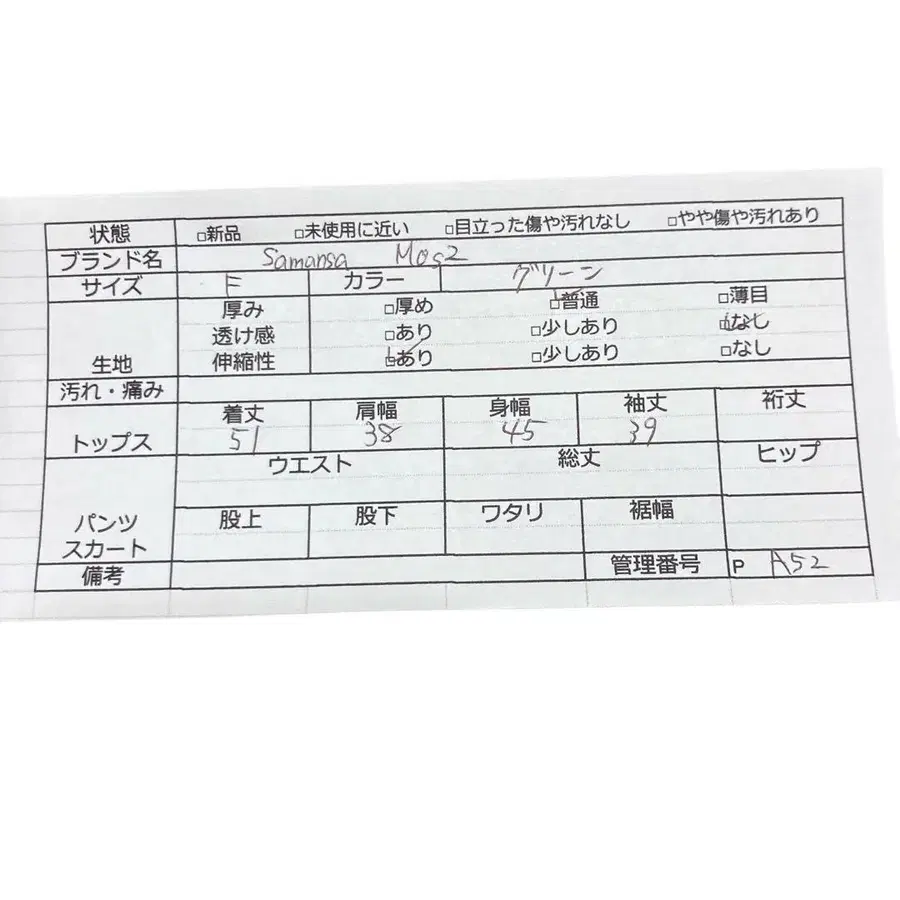 状態 □新品 □未使用に近い □目立った傷や汚れなし □やや傷や汚れあり
ブランド名 Samansa Mos2
サイズ F カラー グリーン
厚み □厚め □普通 □薄目
透け感 □あり □少しあり □なし
生地 伸縮性 □あり □少しあり □なし
汚れ・痛み
着丈 肩幅 身幅 袖丈 裄丈
トップス 51 38 45 39
ウエスト 総丈 ヒップ
股上 股下 ワタリ 裾幅
パンツ
スカート
備考 管理番号 P A52